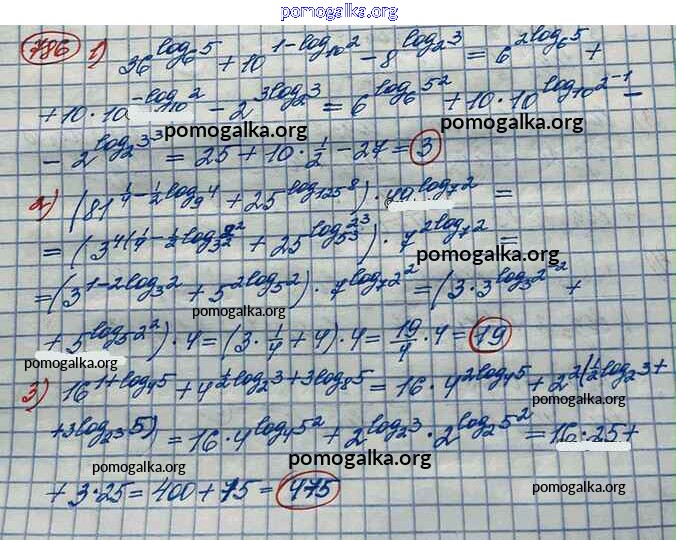 pomogalka.org
786 1) 36^{log_6 5} + 10^{1-log_{10} 2} - 8^{log_2 3} = 6^{2log_6 5} +
+ 10·10^{-log_{10} 2} - 2^{3log_2 3} = 6^{log_6 5^2} + 10·10^{log_{10} 2^{-1}} -
pomogalka.org pomogalka.org
- 2^{log_2 3^3} = 25 + 10·1/2 - 27 = 3
2) (81^{1/4-1/2 log_9 4} + 25^{log_{125} 8})·49^{log_7 2} =
= (3^{4(1/4-1/2 log_{3^2} 2^2)} + 25^{log_{5^3} 2^3})·7^{2log_7 2} =
pomogalka.org
= (3^{1-2log_3 2} + 5^{2log_5 2})·7^{log_7 2^2} = (3·3^{log_3 2^{-2}} +
pomogalka.org
+ 5^{log_5 2^2})·4 = (3·1/4 + 4)·4 = 19/4·4 = 19
pomogalka.org
3) 16^{1+log_4 5} + 4^{1/2 log_2 3+3log_8 5} = 16·4^{2log_4 5} + 2^{2(1/2 log_2 3+
pomogalka.org
+3log_{2^3} 5)} = 16·4^{log_4 5^2} + 2^{log_2 3}·2^{log_2 5^2} = 16·25 +
pomogalka.org pomogalka.org
+ 3·25 = 400 + 75 = 475
pomogalka.org